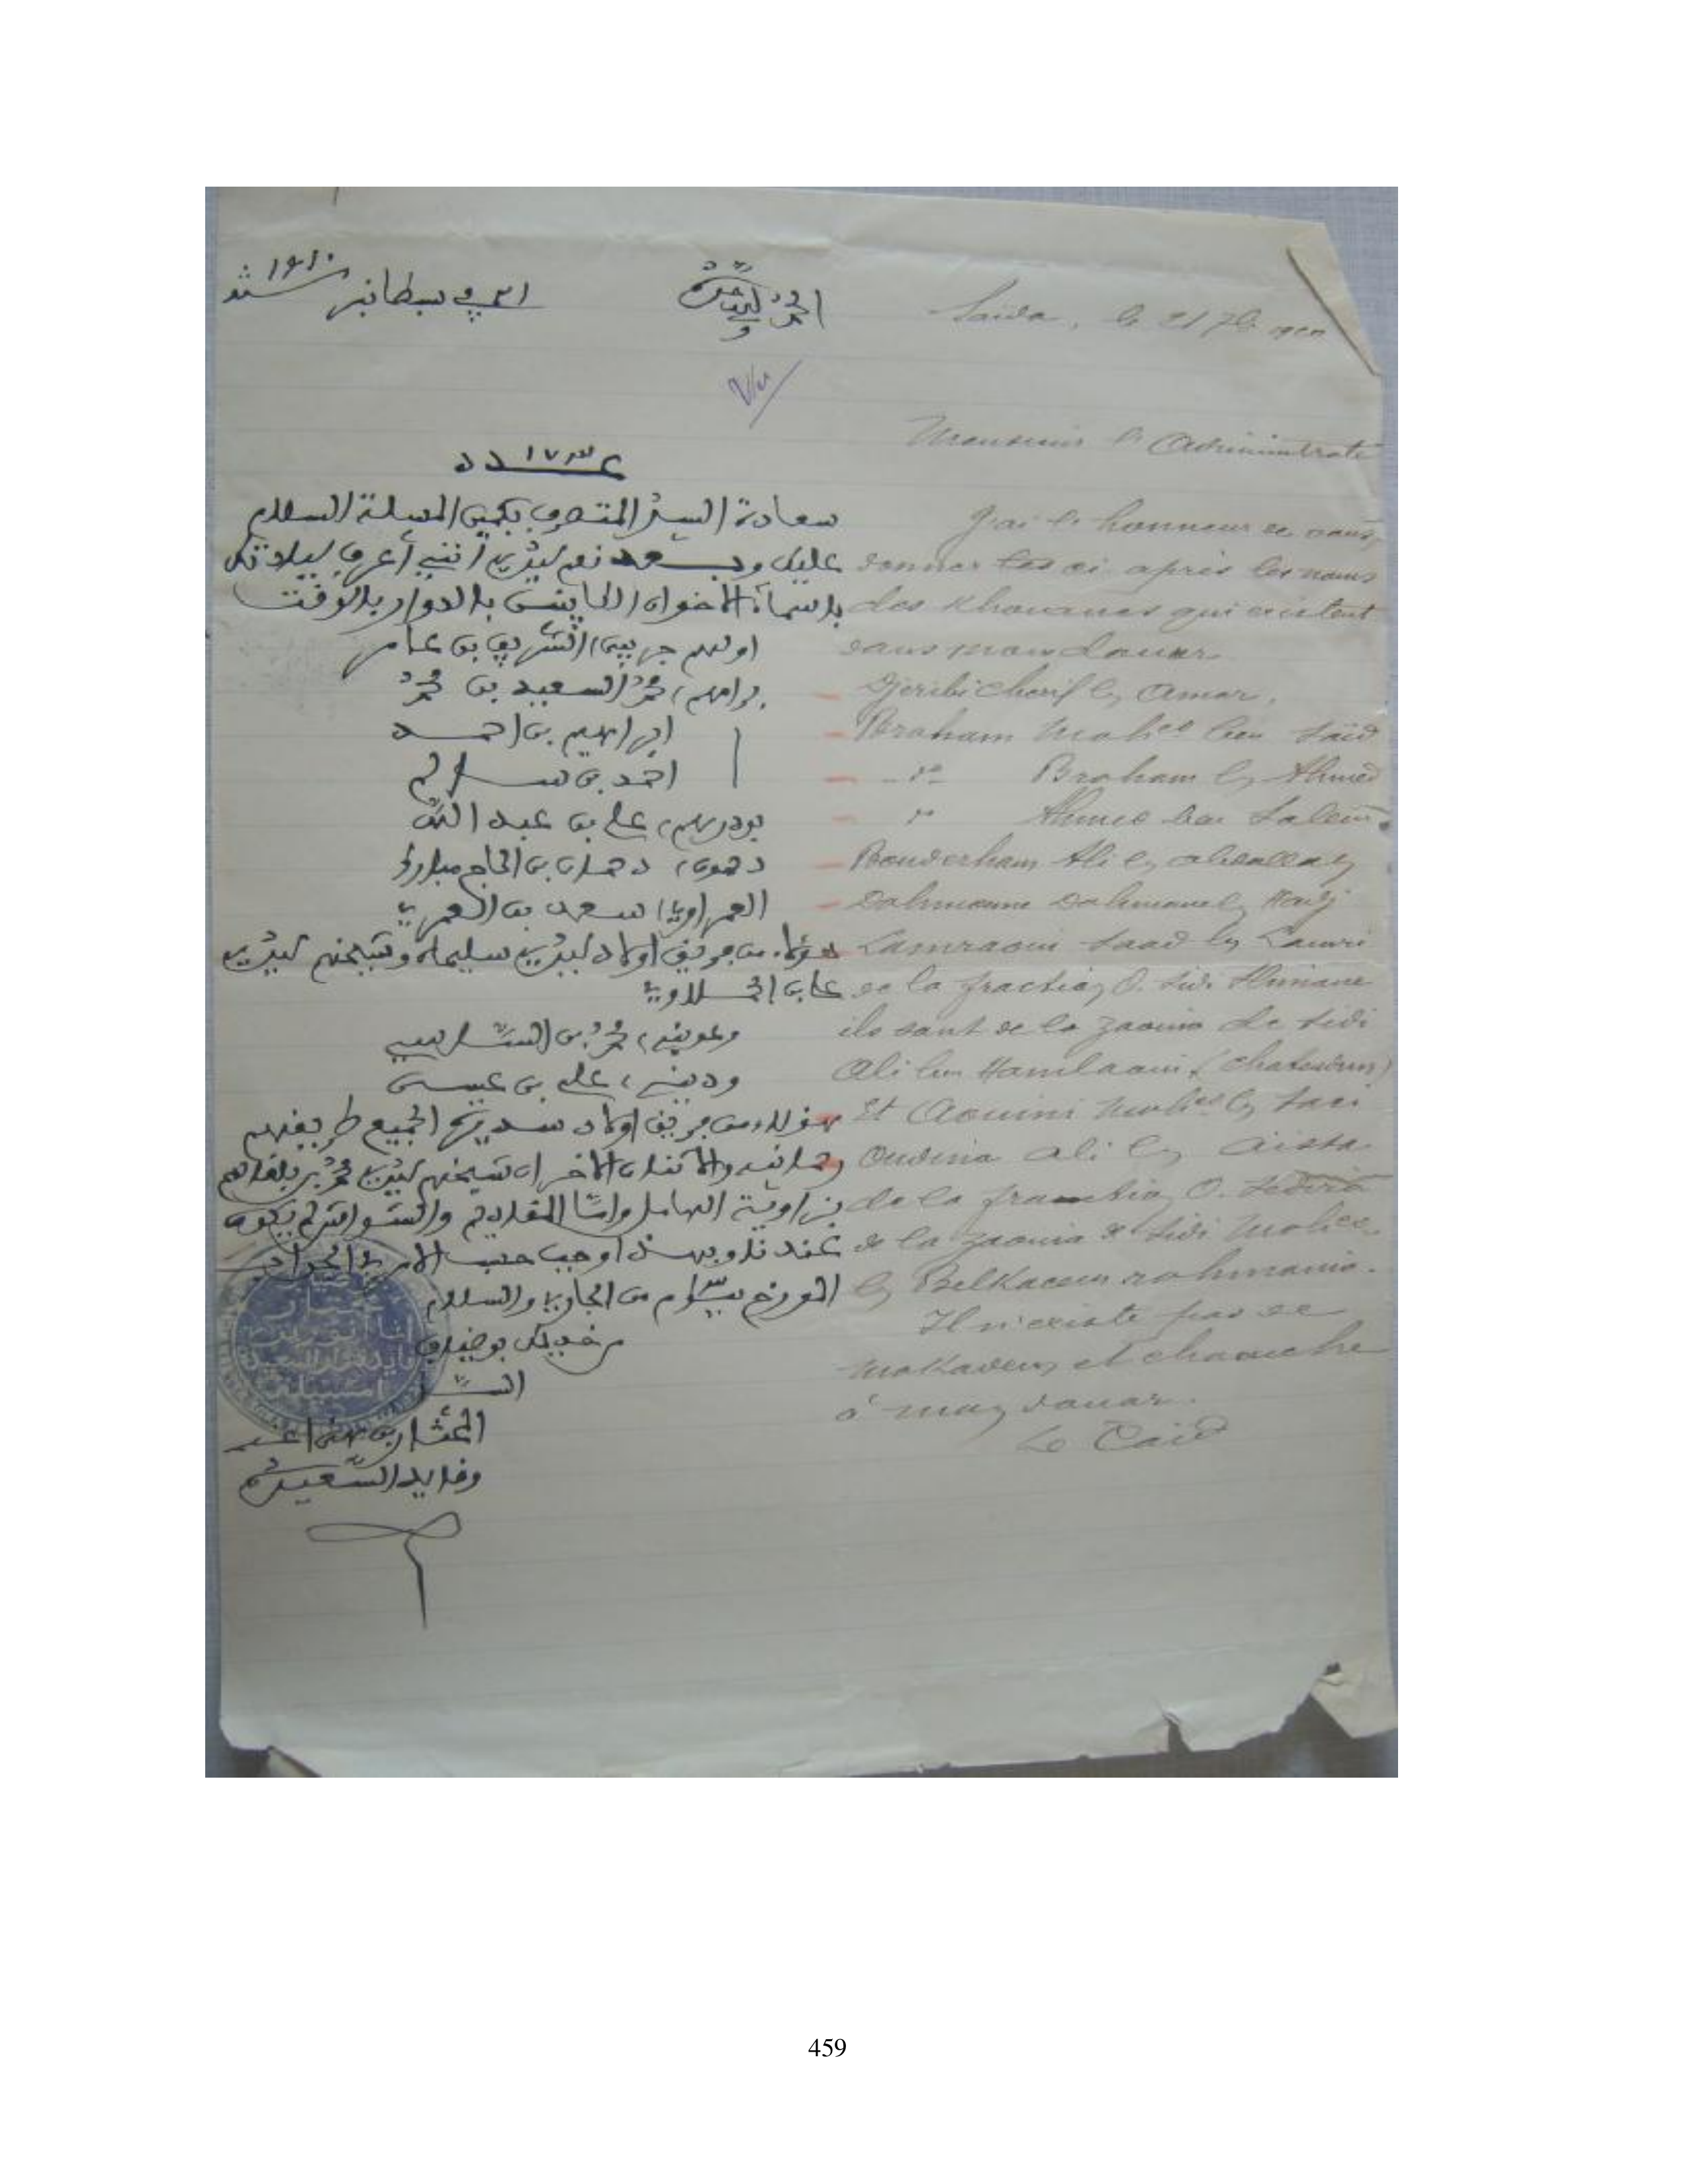 الحمد لله وحده
في سبطانبر سنة 1910
عدد 173
سعادة السيد المتصرف بكمين المسيلة السلام
عليك وبعد نعم سيدي أنني أعرف سيادتكم
بأسماء الاخوان الكاينين بالدوار بالوقت
اولهم جريبي الشريف بن عامر
براهم محمد السعيد بن محمد
ابراهيم بن احمد
احمد بن سالم
بودرهم علي بن عبد الله
دحمون دحمان بن الحاج مبارك
العمراوي سعد بن العمري
هؤلاء من فريق اولاد سيدي سليمان وشيخهم سيدي
علي الحملاوي
وعويني محمد بن الساسي
ودينه علي بن عيسى
هؤلاء من فريق اولاد سديرة الجميع طريقتهم
رحمانيه والاثنان الاخران شيخهم سيدي محمد بن بلقاسم
بزاوية الهامل واما المقاديم والشواش لم يكون
عندنا وبهذا وجب حسب الامر الجواب
المورخ من الجاري والسلام
من خديمكم بوضياف
المختار بن
وقايد السعيدة
Saïda, le 21 7bre 1910
Vu
Monsieur l'Administrate
J'ai l'honneur de vous
donner ci après les noms
des Khouanes qui existent
dans mon douar
Djeribi Cherif ben Amar.
Braham Mohed ben Saïd
- do - Braham ben Ahmed
do Ahmed ben Salem.
Bouderham Ali ben Abdallah
Dahmoune Dahmane ben Hadj
Lamraoui Saad ben Lamri
de la fraction O. Sidi Slimane
ils sont de la zaouia de Sidi
Ali ben Hamlaoui (Chateaudun)
Et Aouini Mohed ben Saci
Oudina Ali ben Aissa
de la fraction O. Sedira
de la zaouia de Sidi Mohed
ben Belkacem rahmania.
Il n'existe pas de
mokadem et chaouche
à mon douar.
Le Caïd
459